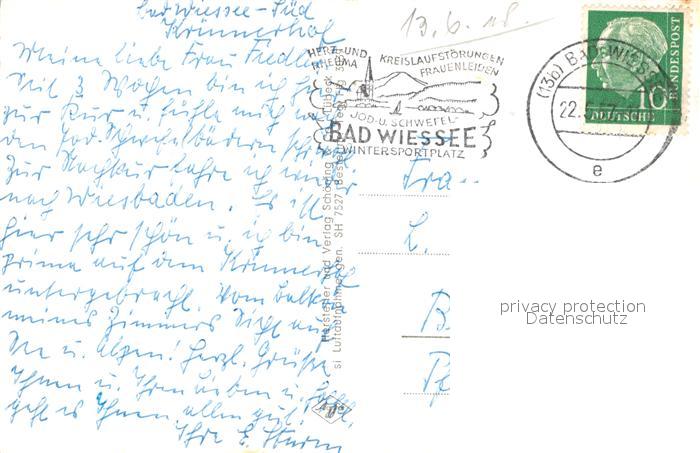 Bad Wiessee-Süd
Krünnerhof
Meine liebe Frau Fiedler
Seit 3 Wochen bin ich
zur Kur u. fühle mich
den Jod-Schwefelbädern
Zur Nachkur fahre ich
nach Wiesbaden. Es ist
hier sehr schön u. ich bin
prima auf dem Krünnerhof
untergebracht. Vom Balkon
meines Zimmers Sicht auf
See u. Alpen! Herzl. Grüße
Ihnen u. Ihren Lieben u. hofftl.
geht es Ihnen allen gut.
Ihre E. Sturm
13.6.
HERZ- UND KREISLAUFSTÖRUNGEN
RHEUMA FRAUENLEIDEN
JOD-U. SCHWEFEL-
BAD WIESSEE
WINTERSPORTPLATZ
(13b) BAD WIESSEE
22.5.57
e
10
DEUTSCHE
BUNDESPOST
Hersteller und Verlag Schöning Lübeck
si Luftaufnahmegen. SH 7527
Frau
L.
B
privacy protection
Datenschutz